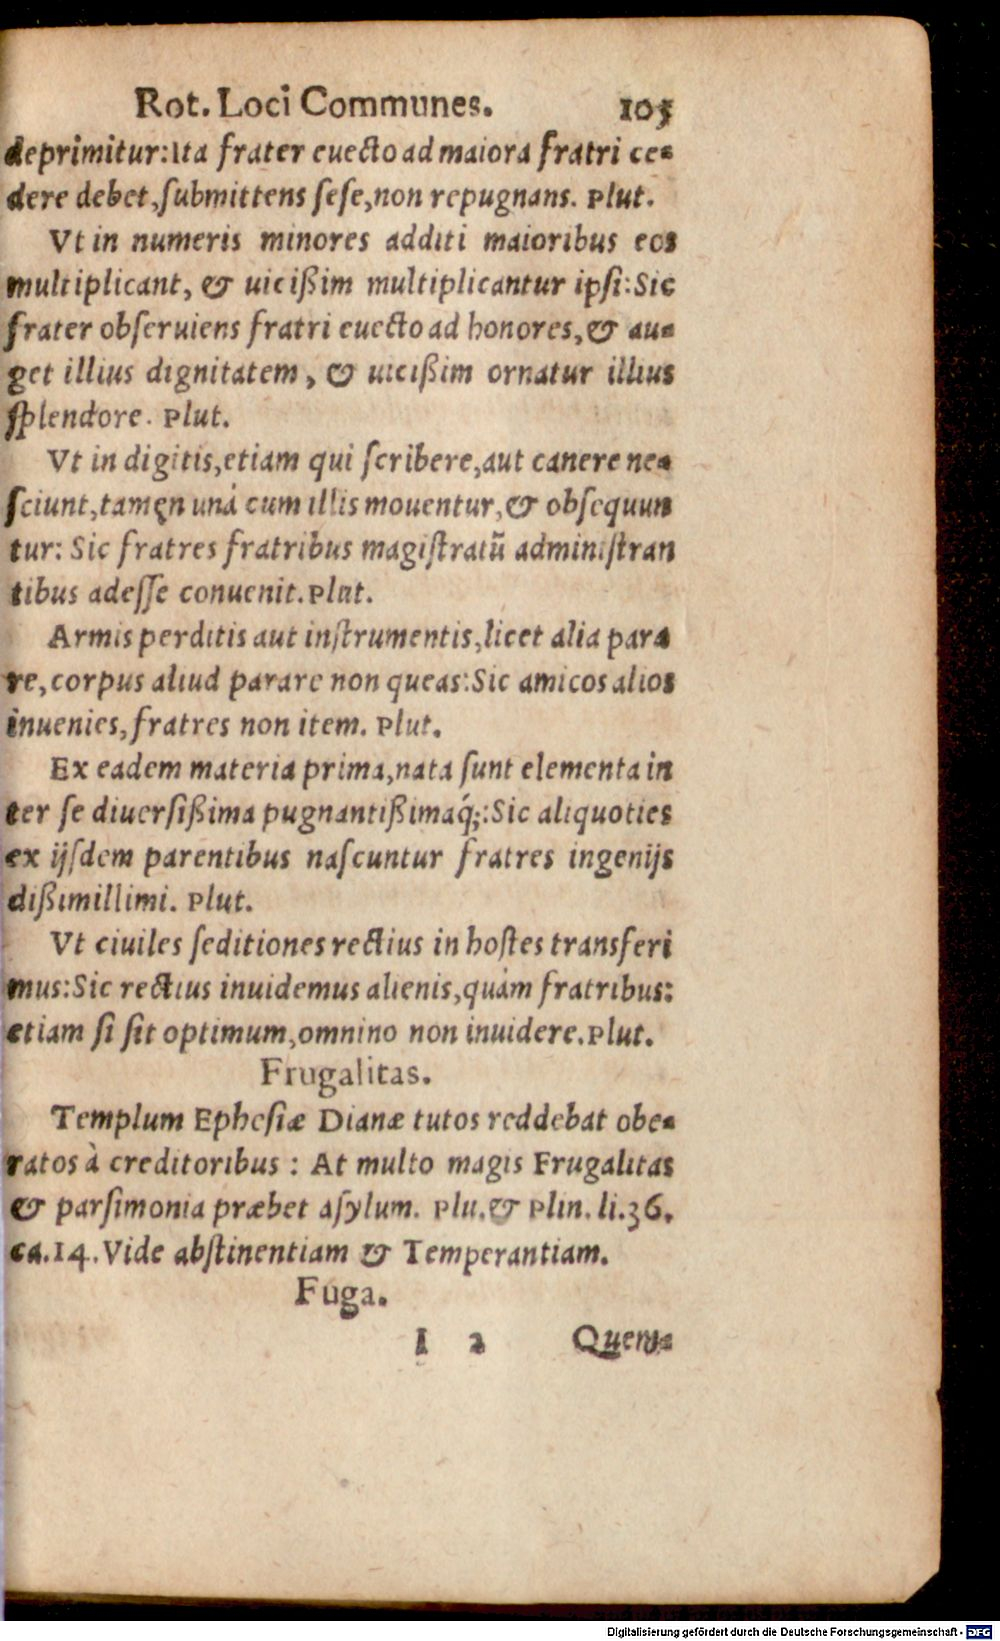 Rot. Loci Communes. 105
deprimitur: Ita frater euecto ad maiora fratri ce-
dere debet, ſubmittens ſeſe, non repugnans. Plut.
Vt in numeris minores additi maioribus eos
multiplicant, & uicißim multiplicantur ipſi: Sic
frater obſeruiens fratri euecto ad honores, & au-
get illius dignitatem, & uicißim ornatur illius
ſplendore. Plut.
Vt in digitis, etiam qui ſcribere, aut canere ne-
ſciunt, tamęn unà cum illis mouentur, & obſequun
tur: Sic fratres fratribus magiſtratũ adminiſtran
tibus adeſſe conuenit. Plut.
Armis perditis aut inſtrumentis, licet alia para
re, corpus aliud parare non queas: Sic amicos alios
inuenies, fratres non item. Plut.
Ex eadem materia prima, nata ſunt elementa in
ter ſe diuerſißima pugnantißimaq́;: Sic aliquoties
ex ijſdem parentibus naſcuntur fratres ingenijs
dißimillimi. Plut.
Vt ciuiles ſeditiones rectius in hoſtes transferi
mus: Sic rectius inuidemus alienis, quàm fratribus:
etiam ſi ſit optimum, omnino non inuidere. Plut.
Frugalitas.
Templum Epheſiæ Dianæ tutos reddebat obe-
ratos à creditoribus: At multo magis Frugalitas
& parſimonia præbet aſylum. Plu. & Plin. li. 36.
ca. 14. Vide abſtinentiam & Temperantiam.
Fuga.
I 2 Quem-
Digitalisierung gefördert durch die Deutsche Forschungsgemeinschaft - DFG